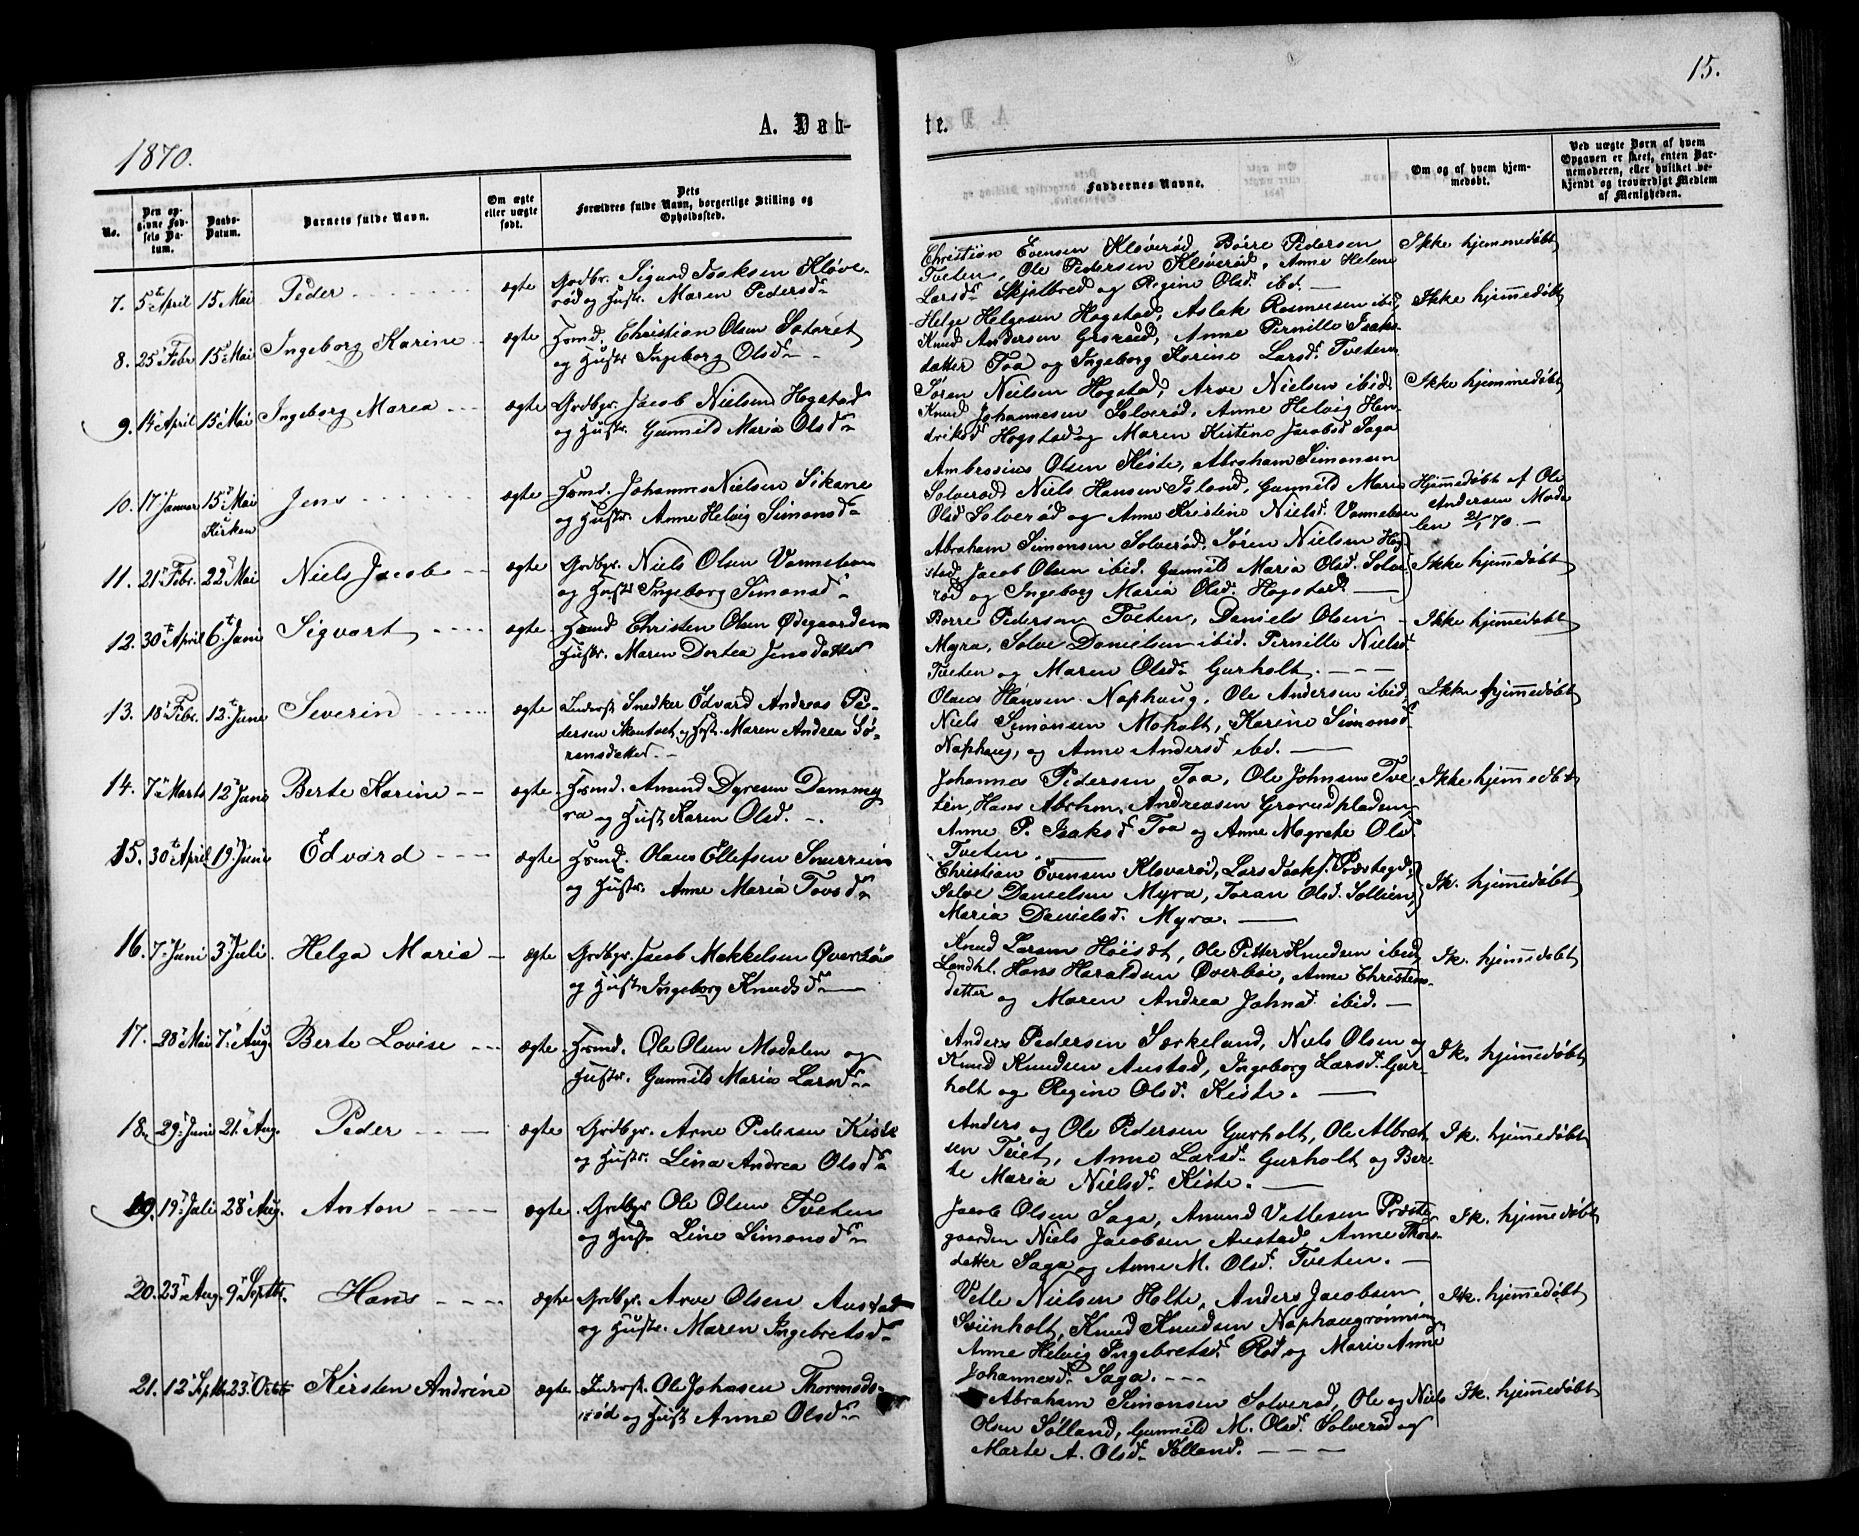 15.
A. Døb-
te.
1870.
No.
Den op-
givne Fød-
sels Da-
tum.
Daabs-
Datum.
Barnets fulde Navn.
Om ægte
eller uægte
født.
Dets
Forældres fulde Navn, borgerlige Stilling og
Opholdssted.
Faddernes Navne.
Om og af hvem hjem-
medøbt.
Ved uægte Børn af hvem
Opgaven er skeet, enten Bar-
nemoderen, eller hvilket be-
kjendt og troværdigt Medlem
af Menigheden.
7. 5t April 15. Mai Peder ægte Grdbr. Sigurd Isaksen Kløve-
rød og Hustr. Maren Pedersd.
Christian Evensen Kløverød, Børre Pedersen
Tveten, Ole Pedersen Kløverød, Anne Helene
Larsd. Skjelbred og Regine Olsd. ibd.
Ikke hjemmedøbt
8. 25. Febr 15. Mai Ingeborg Karine ægte Hsmd. Christian Olsen
og Hustr. Ingeborg Olsd.
Helge Helgesen Hogstad, Aslak Rasmusen ibd.
Knud Andersen Anne Pernille Isaks-
datter Toa og Ingeborg Karine Larsd. Tveten
Ikke hjemmedøbt
9. 14. April 15. Mai Ingeborg Maria ægte Grdbgr. Jacob Nielsen Hogstad
og Hustr. Gunnild Maria Olsd.
Søren Nielsen Hogstad, Arve Nielsen ibid.
Knud Johannesen Solverød, Anne Helvig Hen-
driksd. Hogstad og Maren Kirstene Jacobsd Saga
Ikke hjemmedøbt
10. 17. Januar 15. Mai Kirken Jens ægte Hsmd. Johannes Nielsen Sikane
og Hustr. Anne Helvig Simonsd.
Ambrosius Olsen Kiste, Abraham Simonsen
Solverød Niels Hansen Island, Gunnild Marie
Olsd. Solverød og Anne Kristine Nielsd. Vanneboen
Hjemmedøbt af Ole
Andersen Moda-
len 21/1 70.
11. 21. Febr. 22. Mai Niels Jacob ægte Grdbgr. Niels Olsen Vanneboen
og Hustr Ingeborg Simonsd.
Abraham Simonsen Solverød, Søren Nielsen Hog-
stad, Jacob Olsen ibid. Gunnild Maria Olsd. Solve-
rød og Ingeborg Maria Olsd. Hogstad
Ikke hjemmedøbt
12. 30t April 6t Juni Sigvart ægte Hsmd Christen Olsen Ødegaarden
Hustr. Maren Dortea Jensdatter
Børre Pedersen Tveten, Daniels Olsen
Myra, Solve Danielsen ibid. Pernille Nielsd.
Tveten og Maren Olsd. Gurholt.
Ikke hjemmedøbt
13. 18. Febr. 12t Juni Severin ægte Inderst Snedker Edvard Andreas Pe-
dersen og Hst. Maren Andrea Sø-
rensdatter.
Olaus Hansen Naphaug, Ole Andersen ibid.
Niels Simonsen Moholt, Karine Simonsd.
Naphaug, og Anne Andersd. ibd.
Ikke hjemmedøbt
14. 7. Marts 12. Juni Berte Karine ægte Hsmd. Amund Dyresen Dammy-
ra og Hust Karen Olsd.
Johannes Pedersen Toa, Ole Johnsen Tve-
ten, Hans Abrhm. Andreasen Gravudpladsen
Anne P. Isaksd. Toa og Anne Magrete Olsd.
Tveten
Ikke hjemmedøbt
15. 30t April 19. Juni Edvard ægte Hsmd. Olaus Ellefsen Snurreim
og Hustr. Anne Maria Tovsd.
Christian Evensen Kløverød, Lars Isaks. Præstegd,
Solve Danielsen Myra, Toran Olsd. Sollien,
Maria Danielsd. Myra.
Ik. hjemmedøbt
16. 7. Juni 3. Juli. Helga Maria ægte Grdbgr. Jacob Makkelsen Øverbøe
og Hustr Ingeborg Knudsd.
Knud Larsen Ole Petter Knudsen ibid,
Landhl. Hans Haraldsen Øverbøe, Anne Christens-
datter og Maren Andrea Johnsd. ibid.
Ik. hjemmedøbt
17. 28. Mai 7. Aug. Berte Lovise ægte Hsmd. Ole Olsen Modalen og
Hustr. Gunnild Maria Larsd.
Anders Pedersen Særkeland, Niels Olsen og
Knud Knudsen Austad, Ingeborg Larsd. Gur-
holt og Regine Olsd. Kiste.
Ik. hjemmedøbt
18. 29. Juni 21. Aug. Peder ægte Grdbgr. Arne Pedersen Kiste
og Hustr. Lina Andrea Olsd.
Anders og Ole Pedersen Gurholt, Ole Albret-
sen Teiet, Anne Larsd. Gurholt og Ber-
te Maria Nielsd. Kiste.
Ik. hjemmedøbt
19. 19. Juli 28. Aug. Anton ægte Grdbgr Ole Olsen Tveten
og Hust Line Simonsd.
Jacob Olsen Saga, Amund Vetlesen Præste-
gaarden Niels Jacobsen Austad, Anne Thors-
datter Saga og Anne M. Olsd. Tveten.
Ik. hjemmedøbt
20. 23. Aug. 9. Septbr. Hans ægte Grdbgr. Arve Olsen Austad
og Hustr. Maren Ingebretsd.
Vetle Nielsen Holte, Anders Jacobsen
Sviinholt, Knud Knudsen Naphaugrønning
Anne Helvig Ingebretsd. Rød og Marie Anne
Johannesd. Saga.
Ik. hjemmedøbt
21. 12. Septb 23. Octb Kirsten Andrine ægte Inderst. Ole Johnsen Thormods-
rød og Hust Anne Olsd.
Abraham Simonsen Solverød, Ole og Niels
Olsen Sølland, Gunnild M. Olsd. Solverød og
Marte A. Olsd. Sølland.
Ik. hjemmedøbt